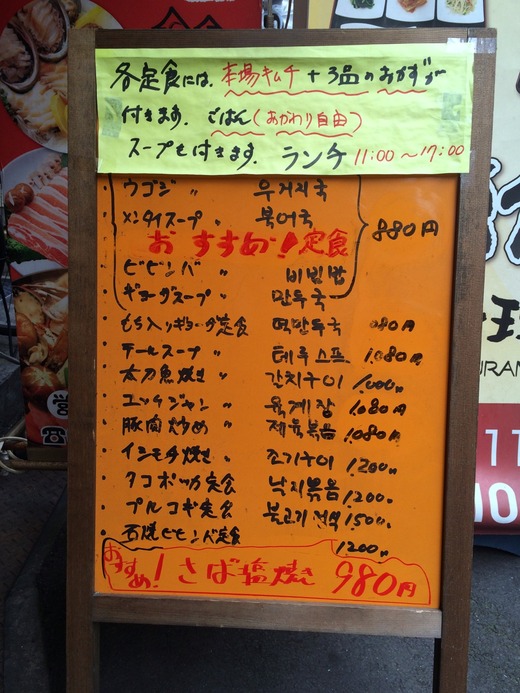 各定食には、本場キムチ+3品のおかずが
付きます。ごはん(おかわり自由)
スープも付きます。ランチ 11:00~17:00
・ウゴジ 〃 우거지국
・メンタイスープ 〃 북어국 880円
おすすめ!定食
・ビビンバ 〃 비빔밥
・ギョーザスープ 〃 만두국
・もち入りギョーザ定食 떡만두국 980円
・テールスープ 〃 테루스프 1,080円
・太刀魚焼き 〃 갈치구이 1,000円
・ユッケジャン 〃 육계장 1,080円
・豚肉炒め 〃 제육볶음 1,080円
・イシモチ焼き 〃 조기구이 1,200円
・タコポッカ定食 낙지볶음 1200円
・プルコギ定食 불고기정식 1,500円
・石焼ビビンバ定食 1200円
おすすめ!さば塩焼き 980円